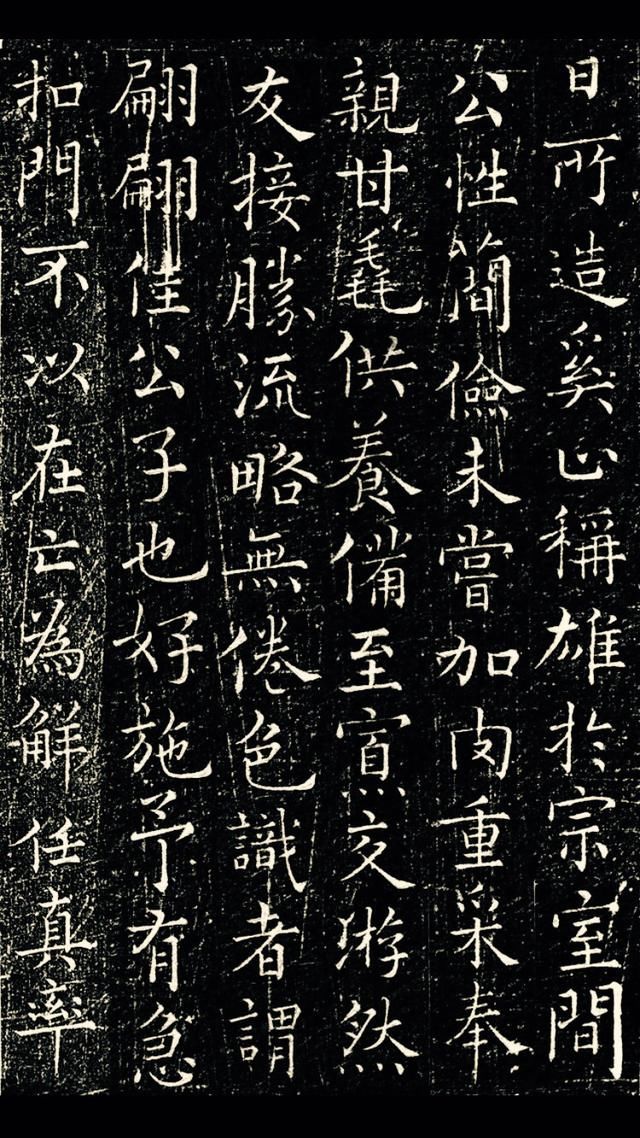 日所造奚止稱雄於宗室間
公性簡儉未嘗加肉重采奉
親甘毳供養備至賔友游然
友接勝流略無倦色識者謂
翩翩佳公子也好施予有急
扣門不以在亡為解任真率